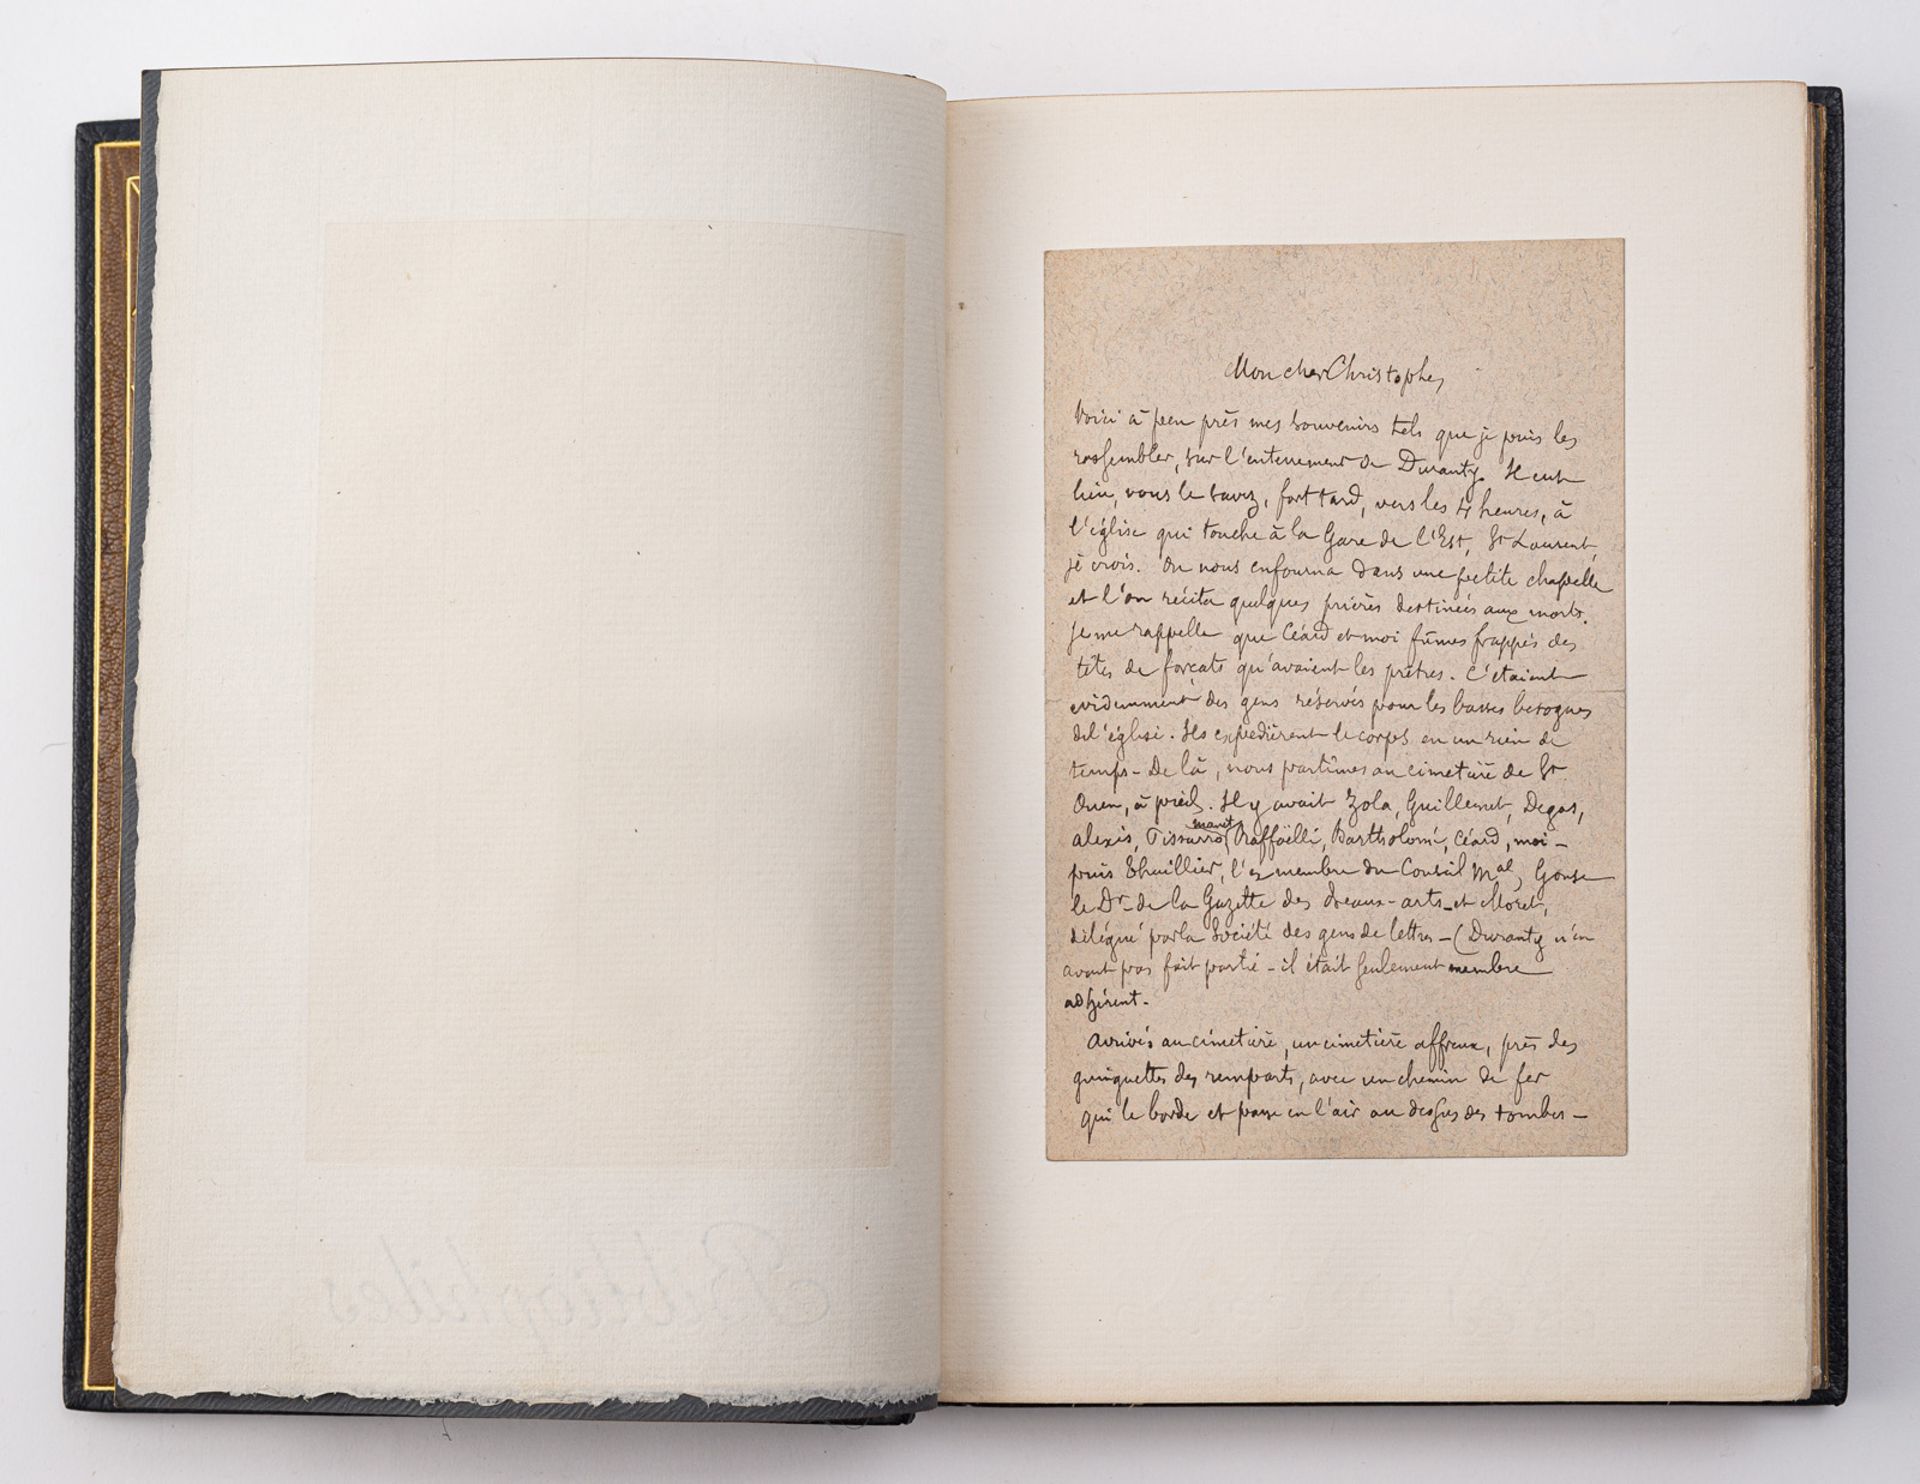 Mon cher Christophe,
Voici à peu près mes souvenirs tels que je puis les
rassembler, sur l'enterrement de Duranty. Il eut
lieu, vous le savez, fort tard, vers les 4 heures, à
l'église qui touche à la Gare de l'Est, St Laurent,
je crois. On nous enfourna dans une petite chapelle
et l'on récita quelques prières destinées aux morts.
Je me rappelle que Céard et moi fûmes frappés des
têtes de forçats qu'avaient les prêtres. C'étaient
évidemment des gens réservés pour les basses besognes
de l'église. Ils expédièrent le corps en un rien de
temps - De là, nous partîmes au cimetière de St
Ouen, à pied. Il y avait Zola, Guillemet, Degas,
manet
alexis, Pissarro, Raffaëlli, Bartholomé, Céard, moi -
puis Thuillier, l'ex membre du Conseil Mal, Gonse
le Dr de la Gazette des Beaux-arts et Moret,
délégué par la Société des gens de lettres - (Duranty n'en
avait pas fait partie - il était seulement membre
adhérent -
Arrivés au cimetière, un cimetière affreux, près des
guinguettes des remparts, avec un chemin de fer
qui le borde et passe en l'air au dessus des tombes -
Bibliophiles